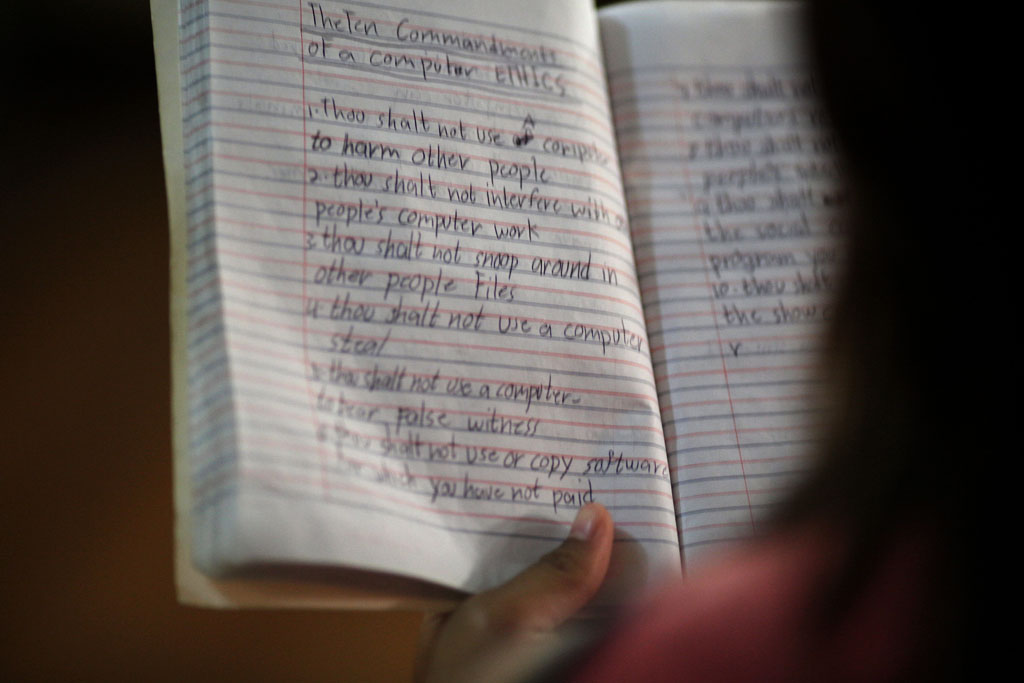 The Ten Commandments
of a computer ETHICS
1. Thou shalt not use a computer
to harm other people
2. thou shalt not interfere with
people's computer work
3. thou shalt not snoop around in
other people Files
4. thou shalt not use a computer
steal
thou shalt not use a computer
to bear False witness
thou shalt not use or copy software
which you have not paid
thou shalt
computer
thou shalt
people's
thou shalt
the social
program you
10. thou shalt
the show